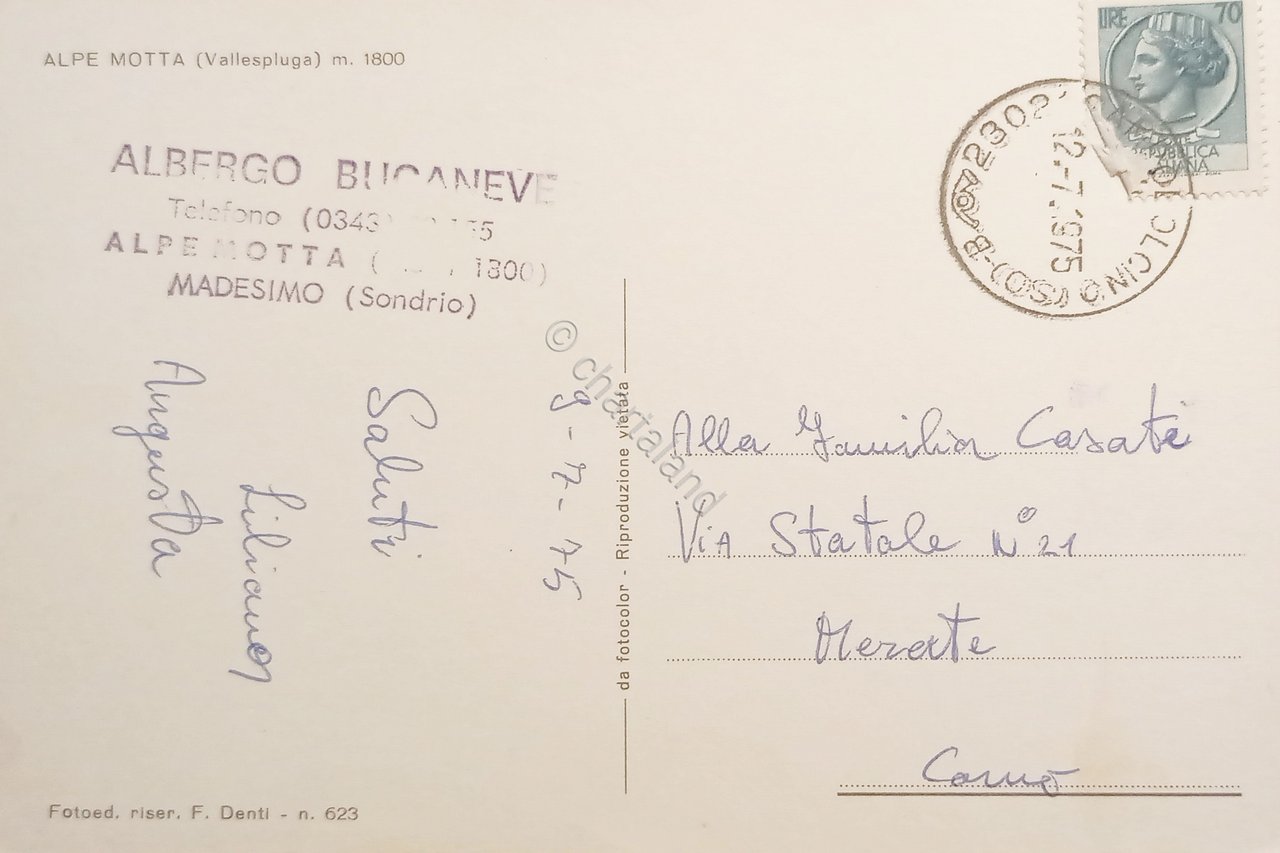 ALPE MOTTA (Vallespluga) m. 1800
ALBERGO BUCANEVE
Telefono (0343)
ALPE MOTTA ( 1800)
MADESIMO (Sondrio)
9-7-75
Saluti
Liliana
Augusta
Fotoed. riser. F. Denti - n. 623
da fotocolor - Riproduzione vietata
© chartaland
LIRE 70
REPUBBLICA
ITALIANA
CAMPODOLCINO (SO)
12.-7.1975
Alla Familia Casati
Via Statale N° 21
Merate
Como